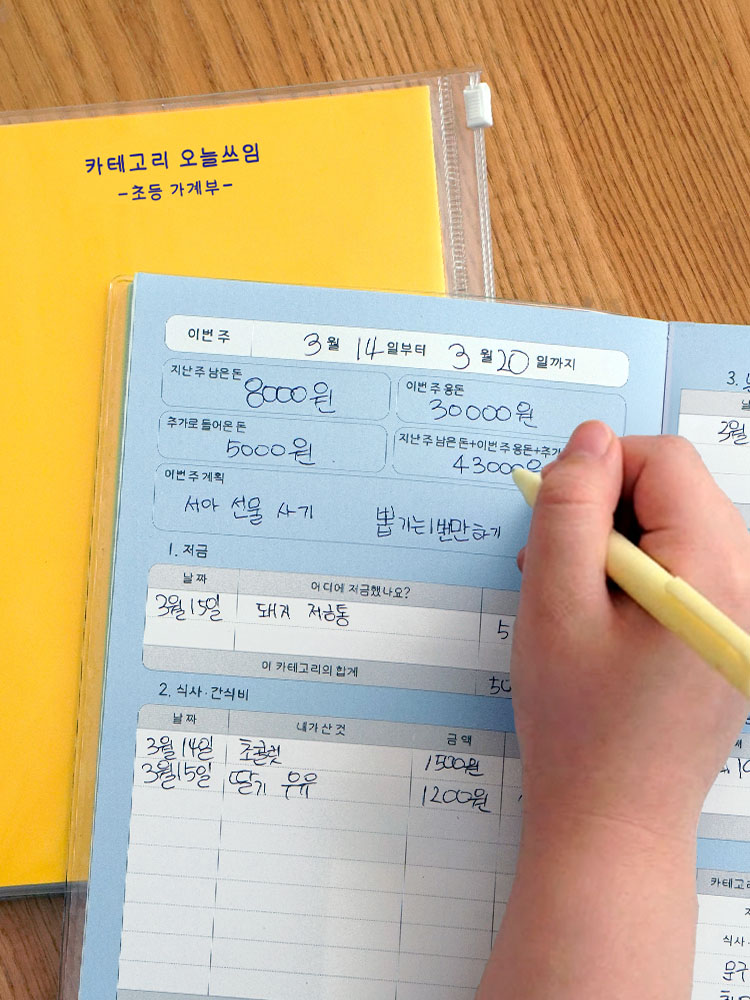 카테고리 오늘쓰임
-초등 가계부-
이번 주 3월 14일부터 3월 20일까지
지난 주 남은 돈 이번 주 용돈
8000원 30000원
추가로 들어온 돈 지난 주 남은 돈+이번 주 용돈+추가
5000원 43000원
이번 주 계획
서아 선물 사기 뽑기는 1번만 하기
1. 저금
날짜 어디에 저금했나요?
3월 15일 돼지 저금통 5
이 카테고리의 합계 50
2. 식사·간식비
날짜 내가 산 것 금액
3월 14일 초콜릿 1500원
3월 15일 딸기 우유 1200원
3.
3월
카테고리
식사·
문구